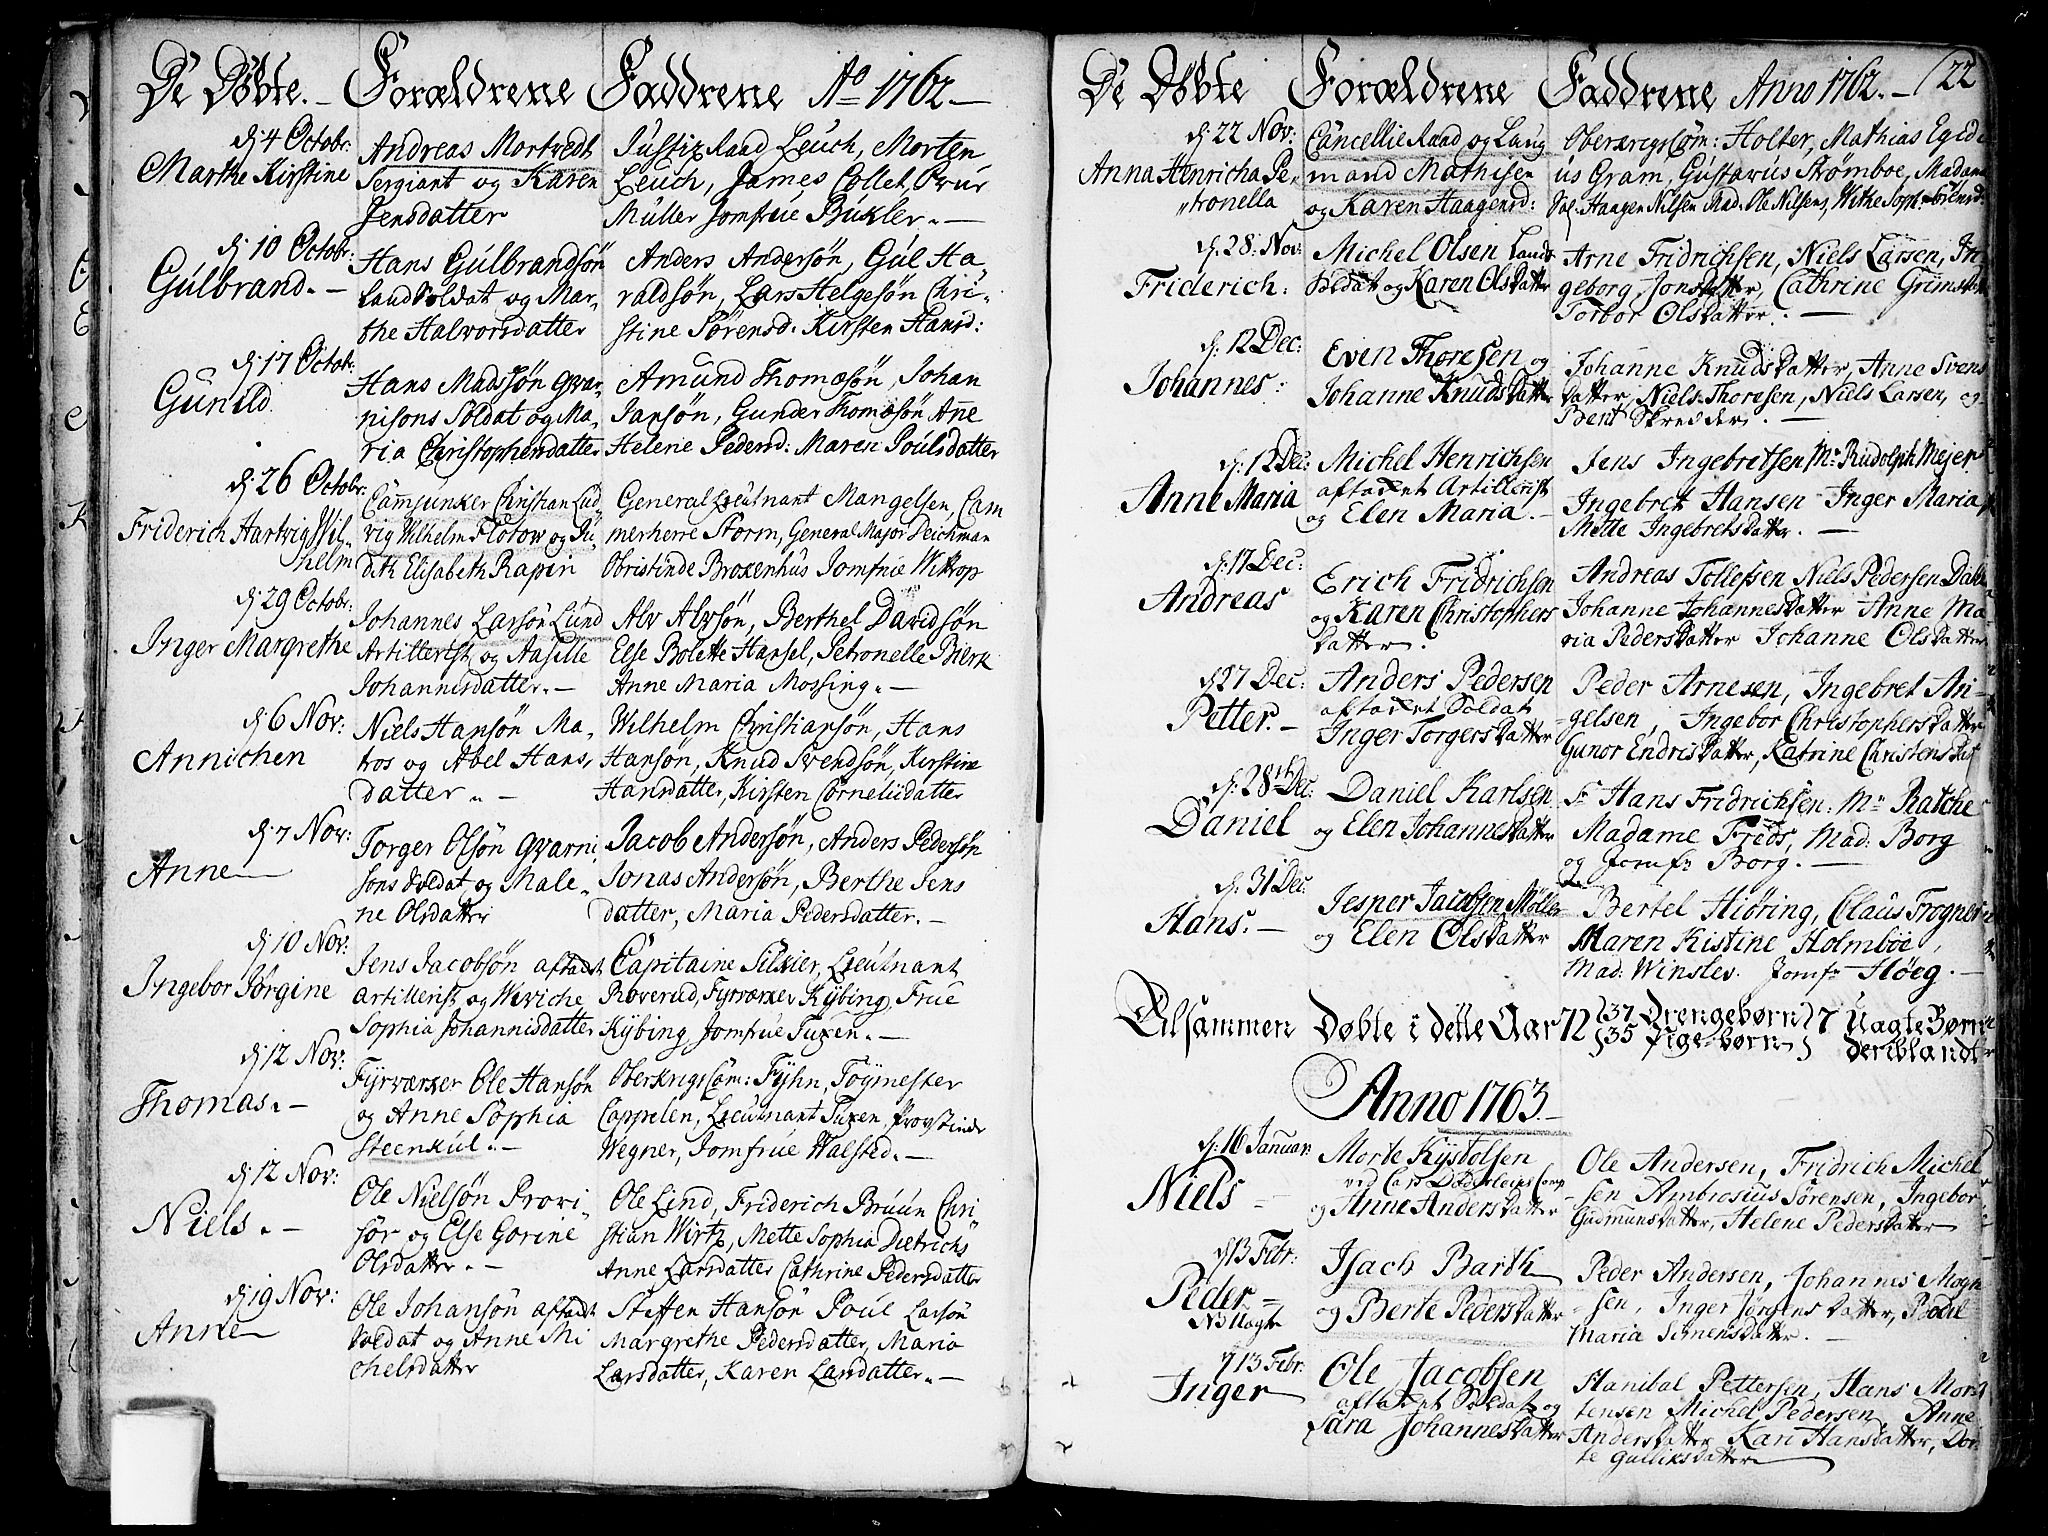 De Døbte. – Forældrene Faddrene Ao 1762 –
dj 4 Octobr:
Marthe Kirstine
Andreas Mortvedt
Sergiant og Karen
Jensdatter
Justiz Raad Leuch, Morten
Leuch, James Collet, Prur
Müller Jomfrue Bukler. –
dj 10 Octobr:
Gulbrand. –
Hans Gulbrandsön
Land Soldat og Mar-
the Halvorsdatter
Anders Andersön, Gul Ha
raldsön, Lars Helgesön Chri-
stine Sörensd. Kirsten Hansd:
dj 17 Octobr:
Gunild
Hans Madssön Gvar-
nisons Soldat og Ma-
ria Christophersdatter
Amund Thomæsön, Johan
Jansön, Gunder Thomæsön Anne
Helene Pedersd: Maren Poulsdatter
dj 26 Octobr.
Friderich Hartvig Wil-
helm
Camjunker Christian Lud
vig Wilhelm Flotow og Ju-
dith Elisabeth Rapin
General Lieutnant Mangelsen, Cam
merherre Storm, General Major Deichman
Obristinde Broxenhus Jomfrue Wittrop
dj 29 Octobr:
Inger Margrethe
Johannes Larsön Lund
Artillerist og Aasille
Johannisdatter. –
Alv Alvsön, Berthel Davidsön
Else Bolette Hansel, Petronelle Bierk
Anne Maria Mossing. –
dj 6 Nov:
Annichen
Niels Hansön Ma-
tros og Abel Hans
datter. –
Wilhelm Christiansön, Hans
Hansön, Knud Svendsön, Kirstine
Hansdatter, Kirsten Corneliidatter
dj 7 Nov:
Anne
Torger Olsön Gvarni
sons Soldat og Male-
ne Olsdatter
Jacob Andersön, Anders Pedersön
Jonas Andersön, Berthe Jens
datter, Maria Pedersdatter. –
dj 10 Nov:
Ingebor Jørgine
Jens Jacobsön aftadt
Artillerist og Wiviche
Sophia Johannisdatter
Capitaine Sibier, Lieutnant
Roverud, Fyrværker Kybing, Frue
Kybing, Jomfrue Tuxen. –
dj 12 Nov:
Thomas. –
Fyrværker Ole Hansön
og Anne Sophia
Steenkul. –
Oberkrigs Com: Fyhn, Töymester
Cappelen, Lieutnant Tuxen, Provstinde
Wegner, Jomfrue Walsted. –
dj 12 Nov:
Niels. –
Ole Nielsön Provi-
sör og Else Gorine
Olsdatter. –
Ole Lind, Friderich Bruun Chri
stian Wirtz, Mette Sophia Dietrichs
Anne Larsdatter Cathrine Pedersdatter
dj 19 Nov:
Anne
Ole Johansön aftadt
Soldat og Anne Mi
chelsdatter
Steffen Hansön Poul Larsön
Margrethe Pedersdatter, Maria
Larsdatter, Karen Larsdatter. –
De Døbte Forældrene Faddrene Anno 1762. – 22
dj. 22 Nov:
Anna Henricha Pe-
tronella
Cancellie Raad og Laug
mand Mathisen
og Karen Haagensd:
Oberkrigs Com: Holter, Mathias Egidi
us Gram, Gustavus Strømboe, Madame
Sal. Haagen Nilsen Mad. Ole Nilsens,
dj. 28. Nov:
Friderich.
Michel Olsen Lands
Soldat og Karen Olsdatter
Arne Fridrichsen, Niels Larsen, In
geborg Jonsdatter, Cathrine Grimsdatter
Torbor Olsdatter. –
dj. 12 Dec:
Johannes.
Even Thoresen og
Johanne Knudsdatter
Johanne Knudsdatter, Anne Svens
datter, Niels Thoresen, Niels Larsen, og
Bent Skredder. –
dj. 12 Dec:
Anne Maria
Michel Henrichsen
aftaket Artillerist
og Elen Maria. –
Jens Ingebretsen Mr. Rudolph Mejer
Ingebret Hansen Inger Maria
Mette Ingebretsdatter. –
dj. 17 Dec:
Andreas
Erich Fridrichsen
og Karen Christophers
datter.
Andreas Tollefsen Niels Pedersen
Johanne Johannesdatter Anne Ma-
ria Pedersdatter Johanne Olsdatter
dj 27 Dec:
Petter. –
Anders Pedersen
aftaket Soldat
Inger Torgersdatter
Peder Arnesen, Ingebret An-
gelsen, Ingebor Christophersdatter
Gunor Endrisdatter, Katrine Christensdat
dj. 28 Dec.
Daniel
Daniel Karlsen
og Elen Johannesdatter
Sr. Hans Fridrichsen. Mr. Ratche
Madame Freds, Mad: Borg
og Jomfr Borg. –
dj. 31 Dec.
Hans. –
Jesper Jacobsen Møller
og Elen Olsdatter
Bertel Hiøring, Claus Frogner
Maren Kistine Holmboe,
Mad: Winsles. Jomfr Høeg. –
Tilsammen Døbte i dette Aar 72 } 37 Drengebørn } 7 Uægte Børn
} 35 Pigebørn } deriblandt
Anno 1763
dj. 16 Januar:
Niels
Morte Kystolsen
ved Comp
og Anne Andersdatter
Ole Andersen, Fridrich Michel
sen Ambrosius Sørensen, Ingebor
Gudmunsdatter, Helene Pedersdatter
dj 13 Febr:
Peder
NB Uægte
Isach Barth
og Berte Pedersdatter
Peder Andersen, Johannis Mogn
sen, Inger Jørgensdatter, Bodil
Maria Simensdatter. –
dj 13 Febr.
Inger
Ole Jacobsen
aftaket Soldat og
Sara Johannesdatter
Hanibal Pettersen, Hans Mor
tensen Michel Pedersen, Anne
Andersdatter Kari Hansdatter, Dor
te Gulliksdatter